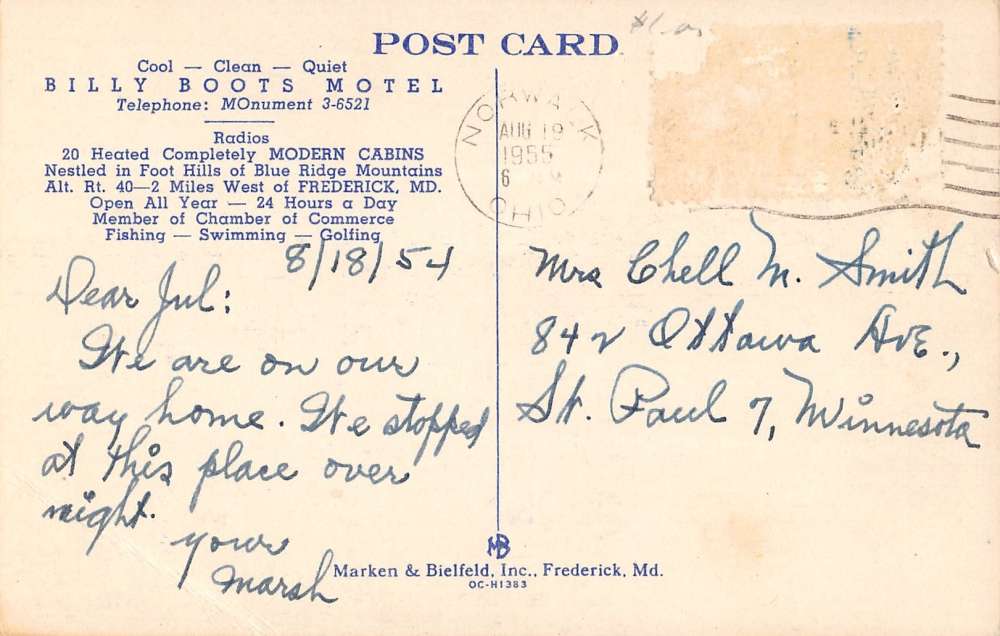 $1.00
POST CARD
Cool — Clean — Quiet
BILLY BOOTS MOTEL
Telephone: MOnument 3-6521
Radios
20 Heated Completely MODERN CABINS
Nestled in Foot Hills of Blue Ridge Mountains
Alt. Rt. 40—2 Miles West of FREDERICK, MD.
Open All Year — 24 Hours a Day
Member of Chamber of Commerce
Fishing — Swimming — Golfing
NORWALK
AUG 19
1955
6
OHIO
8/18/54
Dear Jul:
We are on our
way home. We stopped
at this place over
night.
yours
Marsh
Mrs Chell M. Smith
842 Ottawa Ave.,
St. Paul 7, Minnesota
MB
Marken & Bielfeld, Inc., Frederick, Md.
OC-H1383